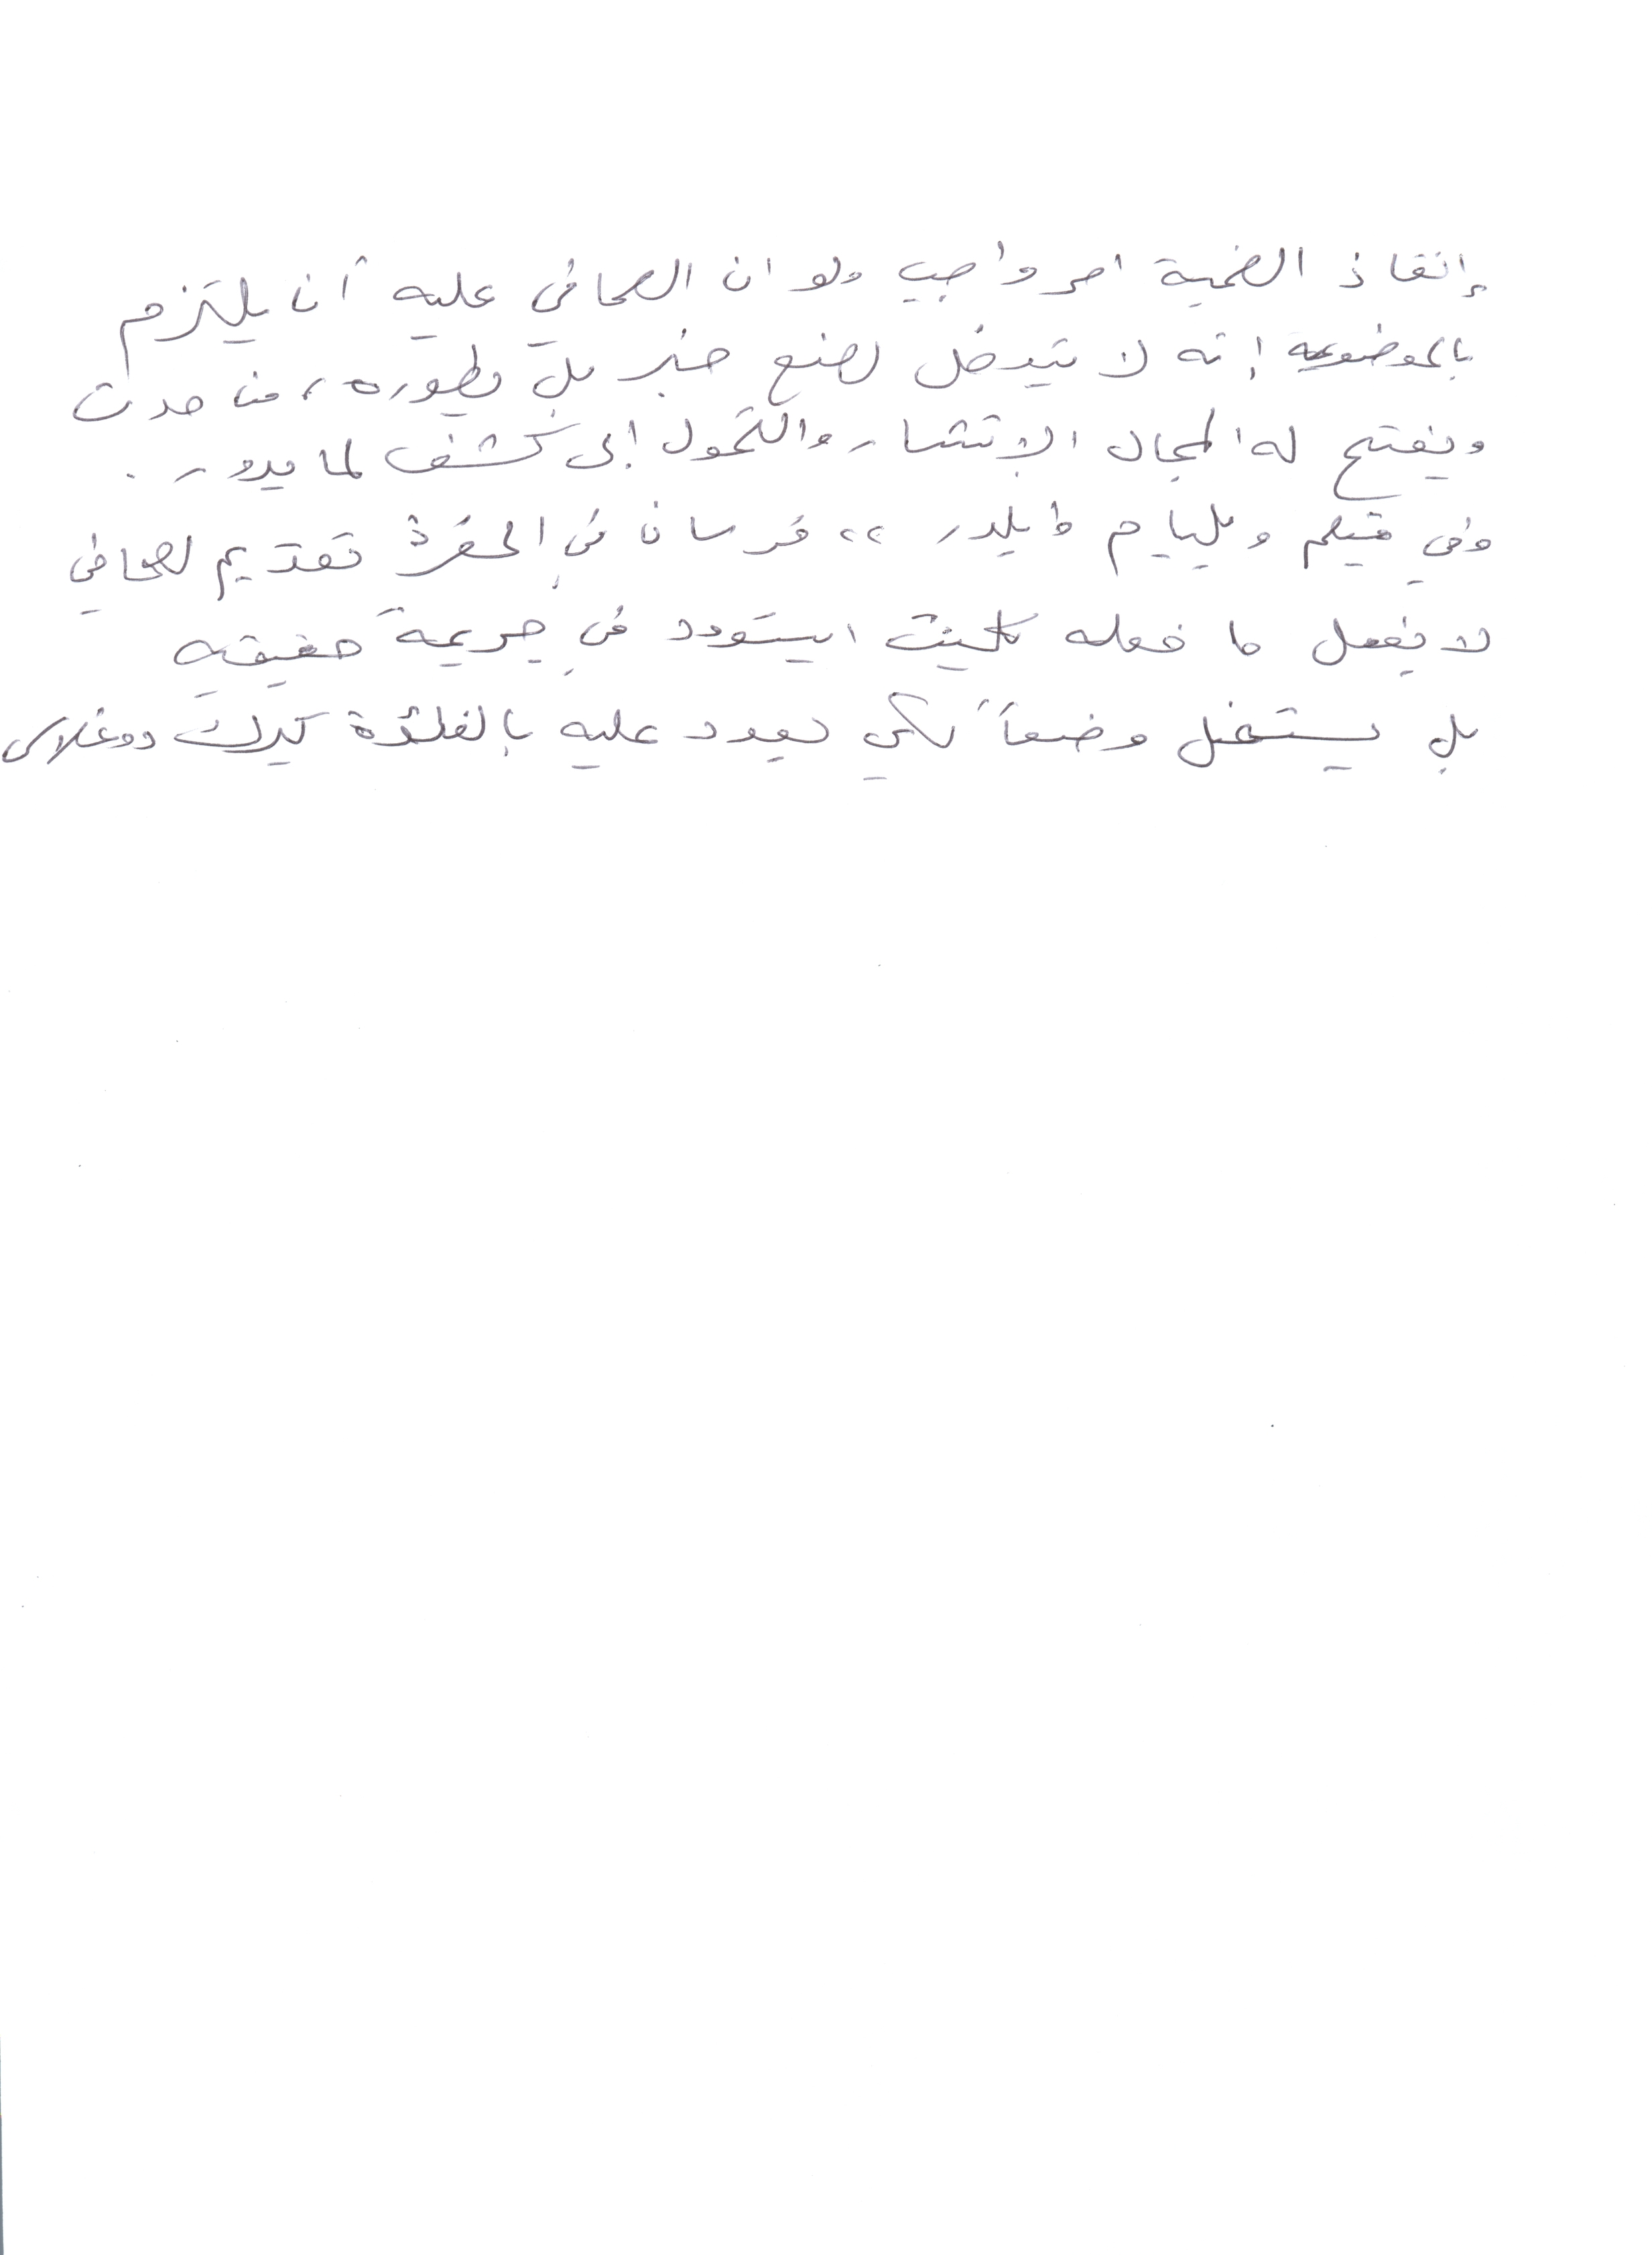 إنقاذ الضحية امر واجب ولو ان الصحافي عليه أن يلتزم
بالموضوعية إنه لا يتدخل لصنع خبر بل يطوره، من حدث
ويفتح له المجال الانتشار والتحول إلى كشف لما يدور .
وفي فيلم ويليام وايلدر ،، فرسان في الحفرة تقديم لصحافي
لا يفعل ما فعله كلينت ايستوود في جريمة حقيقية
بل يستغل وضعاً لكي يعود عليه بالفائدة كيرك دوغلاس